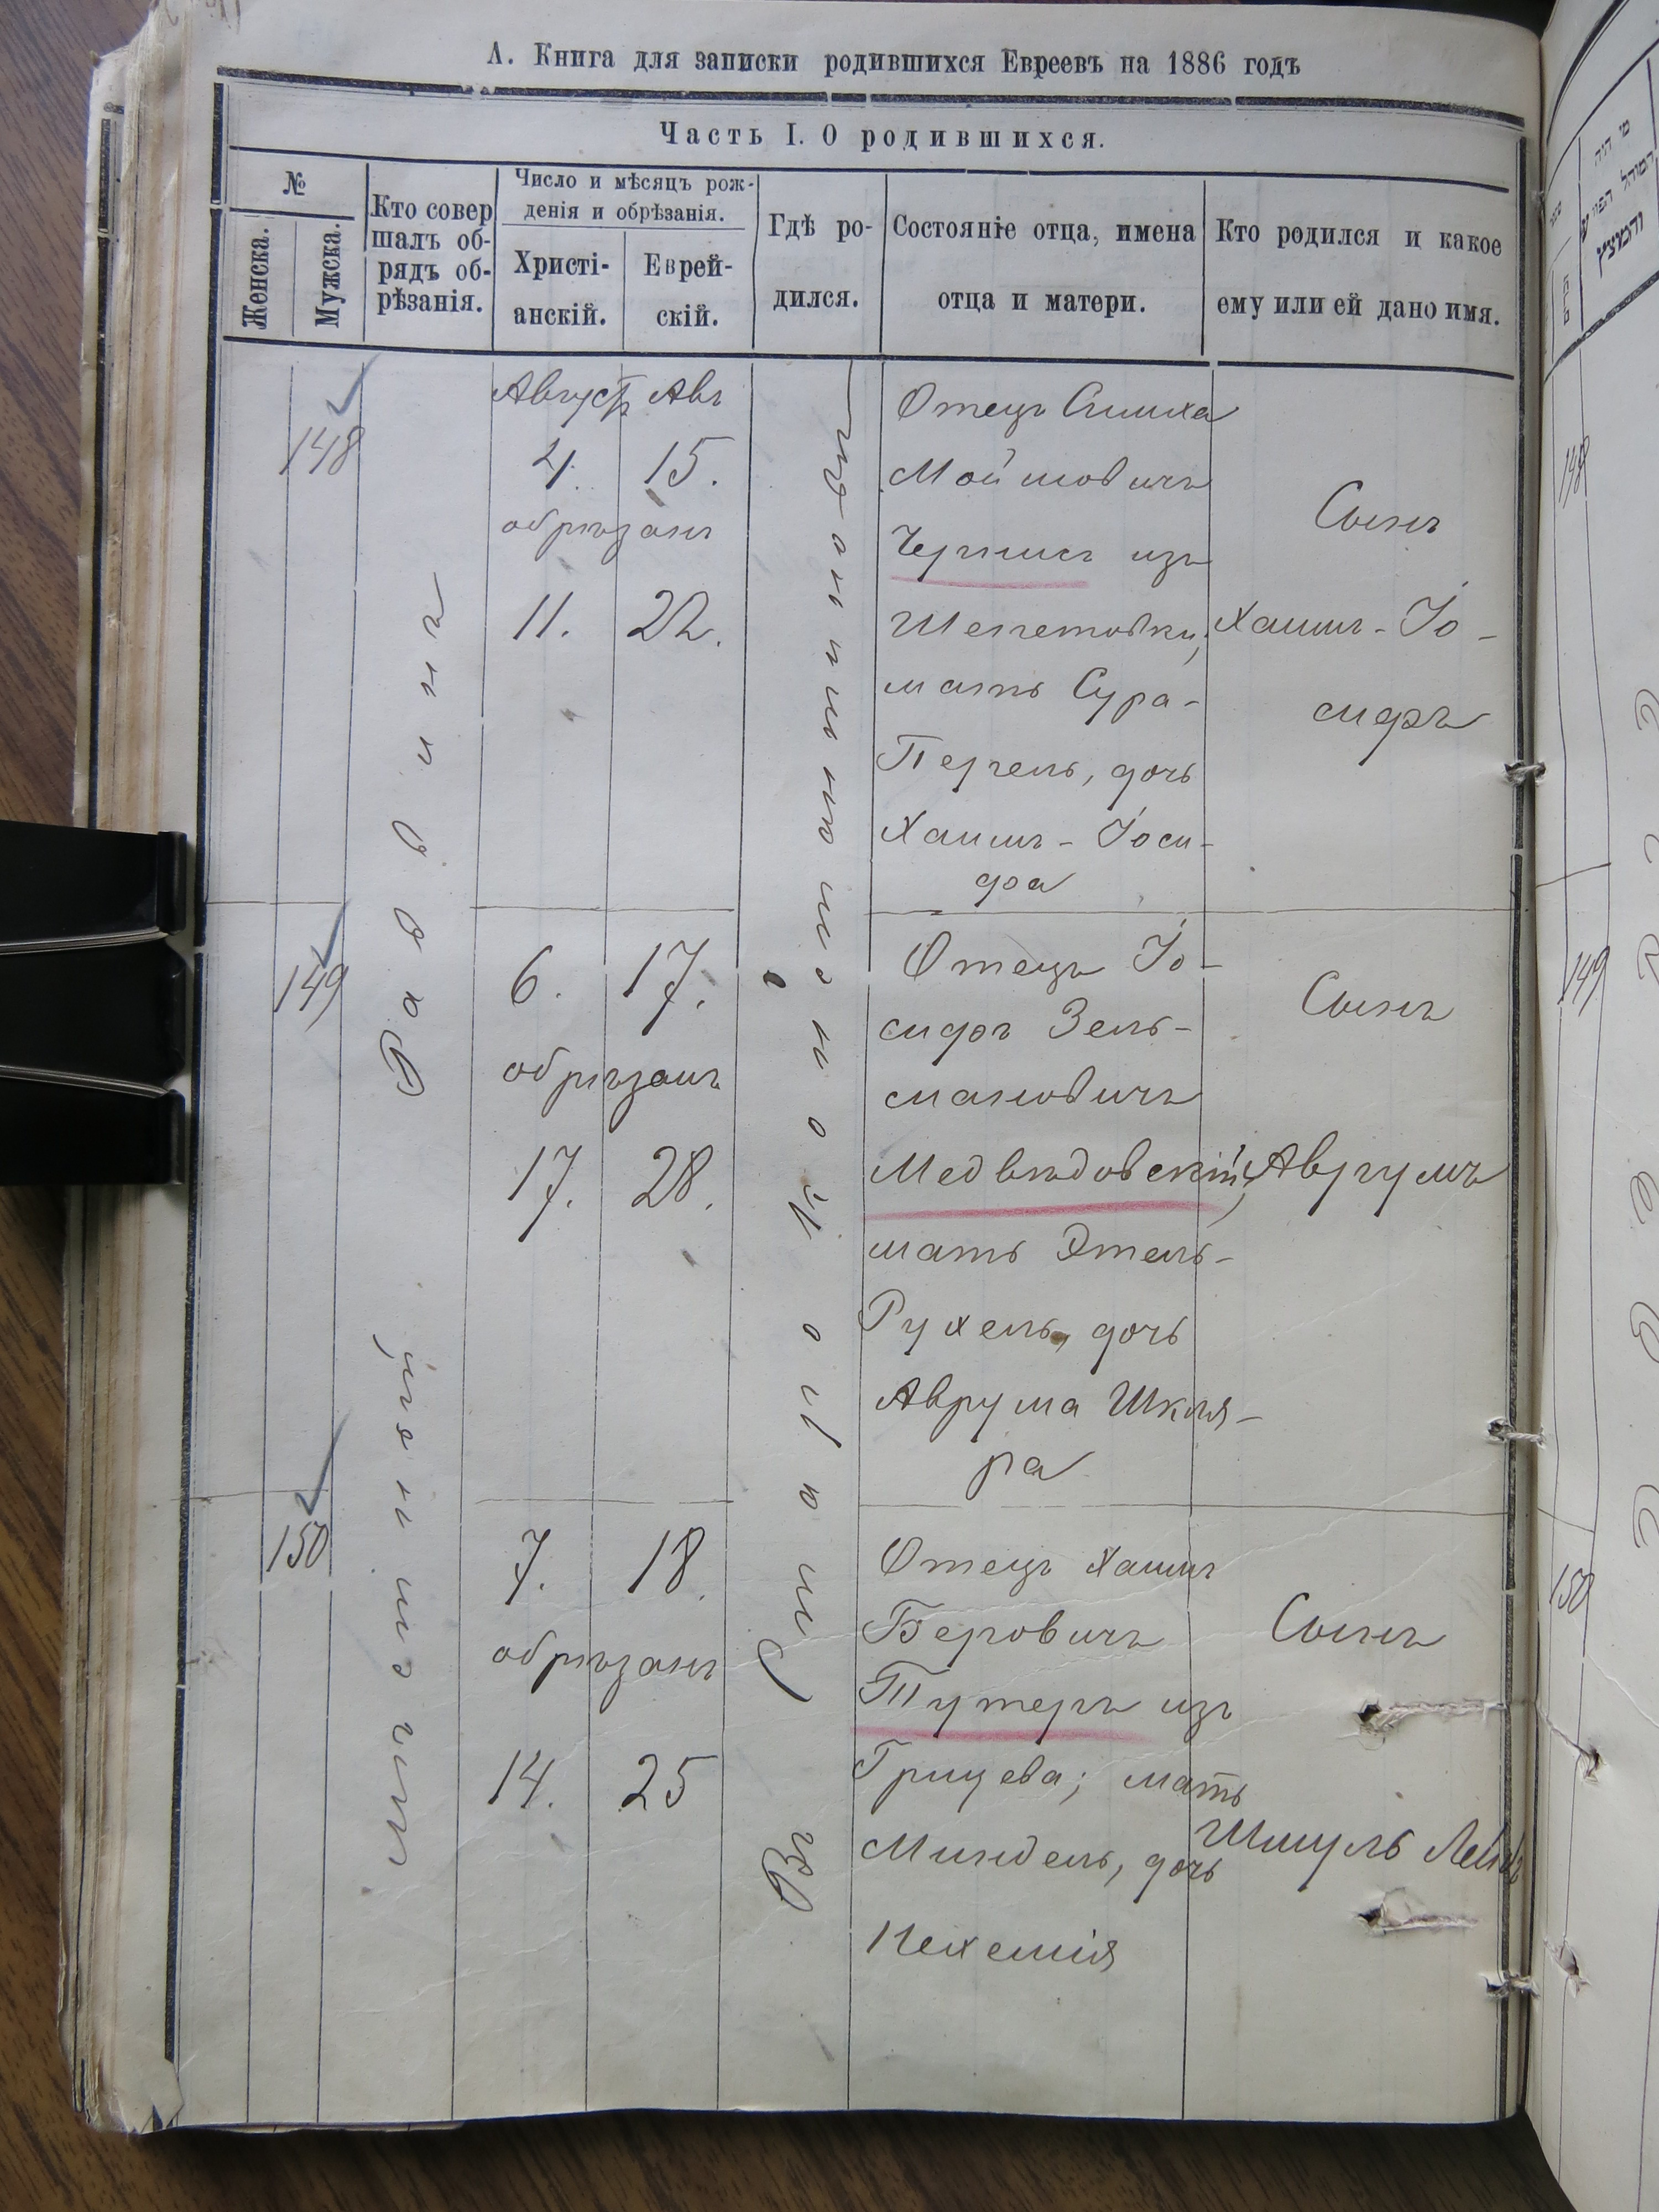 А. Книга для записки родившихся Евреевъ на 1886 годъ
Часть I. О родившихся.
№
Женска.
Мужска.
Кто совер
шалъ об-
рядъ об-
рѣзанія.
Число и мѣсяцъ рож-
денія и обрѣзанія.
Христі-
анскій.
Еврей-
скій.
Гдѣ ро-
дился.
Состояніе отца, имена
отца и матери.
Кто родился и какое
ему или ей дано имя.
148
Августъ Авъ
4. 15.
обрѣзанъ
11. 22.
Отецъ Симха
Мойшовичъ
изъ
Шепетовки,
мать Сура-
Перель, дочь
Хаимъ-Іоси-
фа
Сынъ
Хаимъ-Іо-
сифъ
149
6. 17.
обрѣзанъ
17. 28.
Отецъ Іо-
сифъ Зель-
мановичъ
Медвѣдовскій,
мать Этель-
Рухель, дочь
Аврума Шкля-
ра
Сынъ
Аврумъ
150
7. 18.
обрѣзанъ
14. 25
Отецъ Хаимъ
Беровичъ
Тутеръ изъ
Грицева; мать
Миндель, дочь
Нехемія
Сынъ
Шмуль Лейб
Раввинъ
Въ
148
149
150